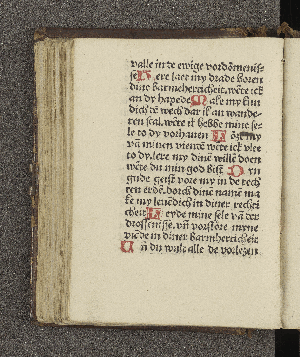 valle in de ewige vordömenis-
se Here laet my drade horen
dine barmeherticheit wēte ick
an dy hapede Make my kun
dich dē wech dar ik an wande-
ren scal wēte ik hebbe mine se-
le to dy vorhauen
van minen vienen wēte ick vlee
to dy lere my dinē wille doen
wēte du min god bist Dyn
gude geist vore my in de rech
ten erdē dorch dine name ma
ke my leuēdich in diner rechti
cheit Leyde mine sele vā der
drossenisse vn̄ vorstöre myne
viēde in diner barmherticheit
Un̄ du wult alle de vorlezen